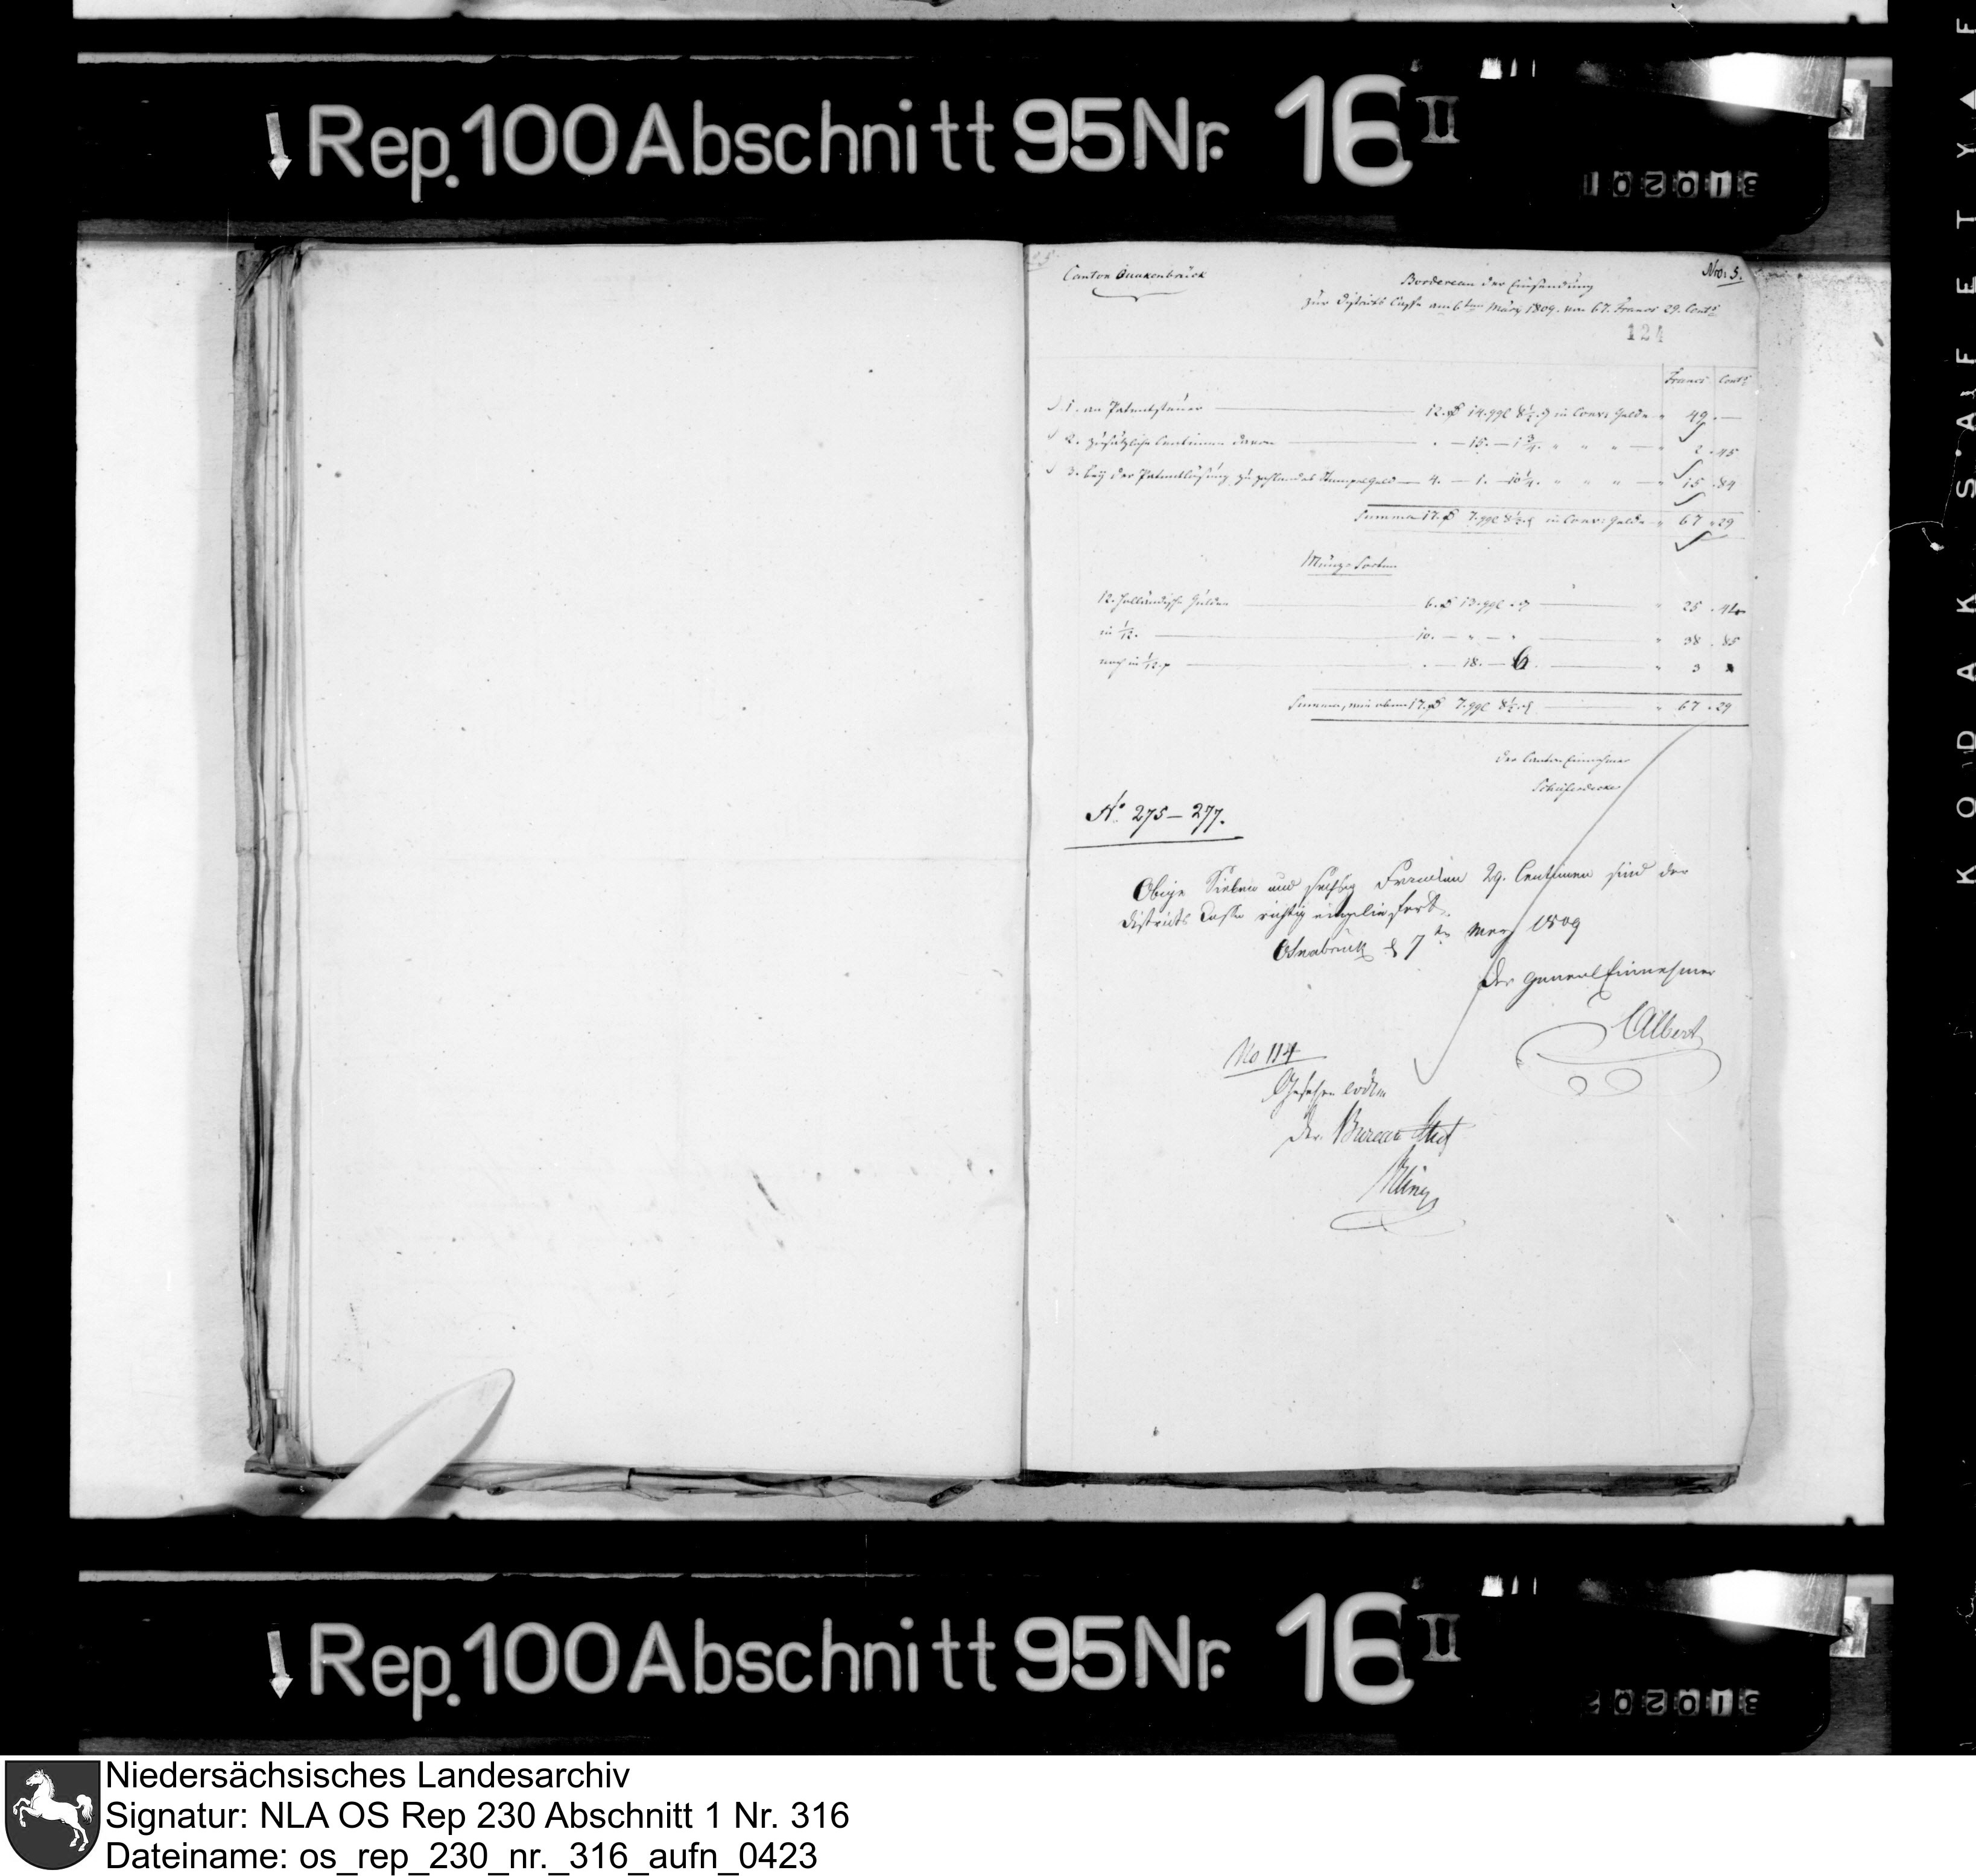 Rep. 100 Abschnitt 95 Nr. 16 II
102013
Canton Quakenbrück
Nro: 5.
Bordereau der Einsendung
zur Districts Casse am 6ten März 1809. von 67. Francs 29. Cents
124
Francs Cents
1. an Patentsteuer 12. 14. ggl 8½ in Conv: Gelde 49. —
2. zusätzliche Centimen davon — 15. — 1¾. 2. 45
3. bey der Patentlösung zu zahlendes Stempelgeld — 4. — 1. — 10¼. 15. 84
Summa 17. 7. ggl 8½ in Conv: Gelde 67. 29
Münz-Sorten
12. Holländische Gulden 6. 13. ggl 25. 44
in 1/12. 10. — 38. 85
noch in 1/12 — 18. — 6 3
Summa, wie oben 17. 7. ggl 8½ 67. 29
Der Canton Einnehmer
No 275 — 277.
Obige Sieben und sechzig Franken 29. Centimen sind der
Districts Casse richtig eingeliefert.
Osnabrück d 7ten März 1809
Der General Einnehmer
CAlbert
No 114
Gesehen eodem
Der Bureau Chef
KODAK SAFETY
Rep. 100 Abschnitt 95 Nr. 16 II
Niedersächsisches Landesarchiv
Signatur: NLA OS Rep 230 Abschnitt 1 Nr. 316
Dateiname: os_rep_230_nr._316_aufn_0423